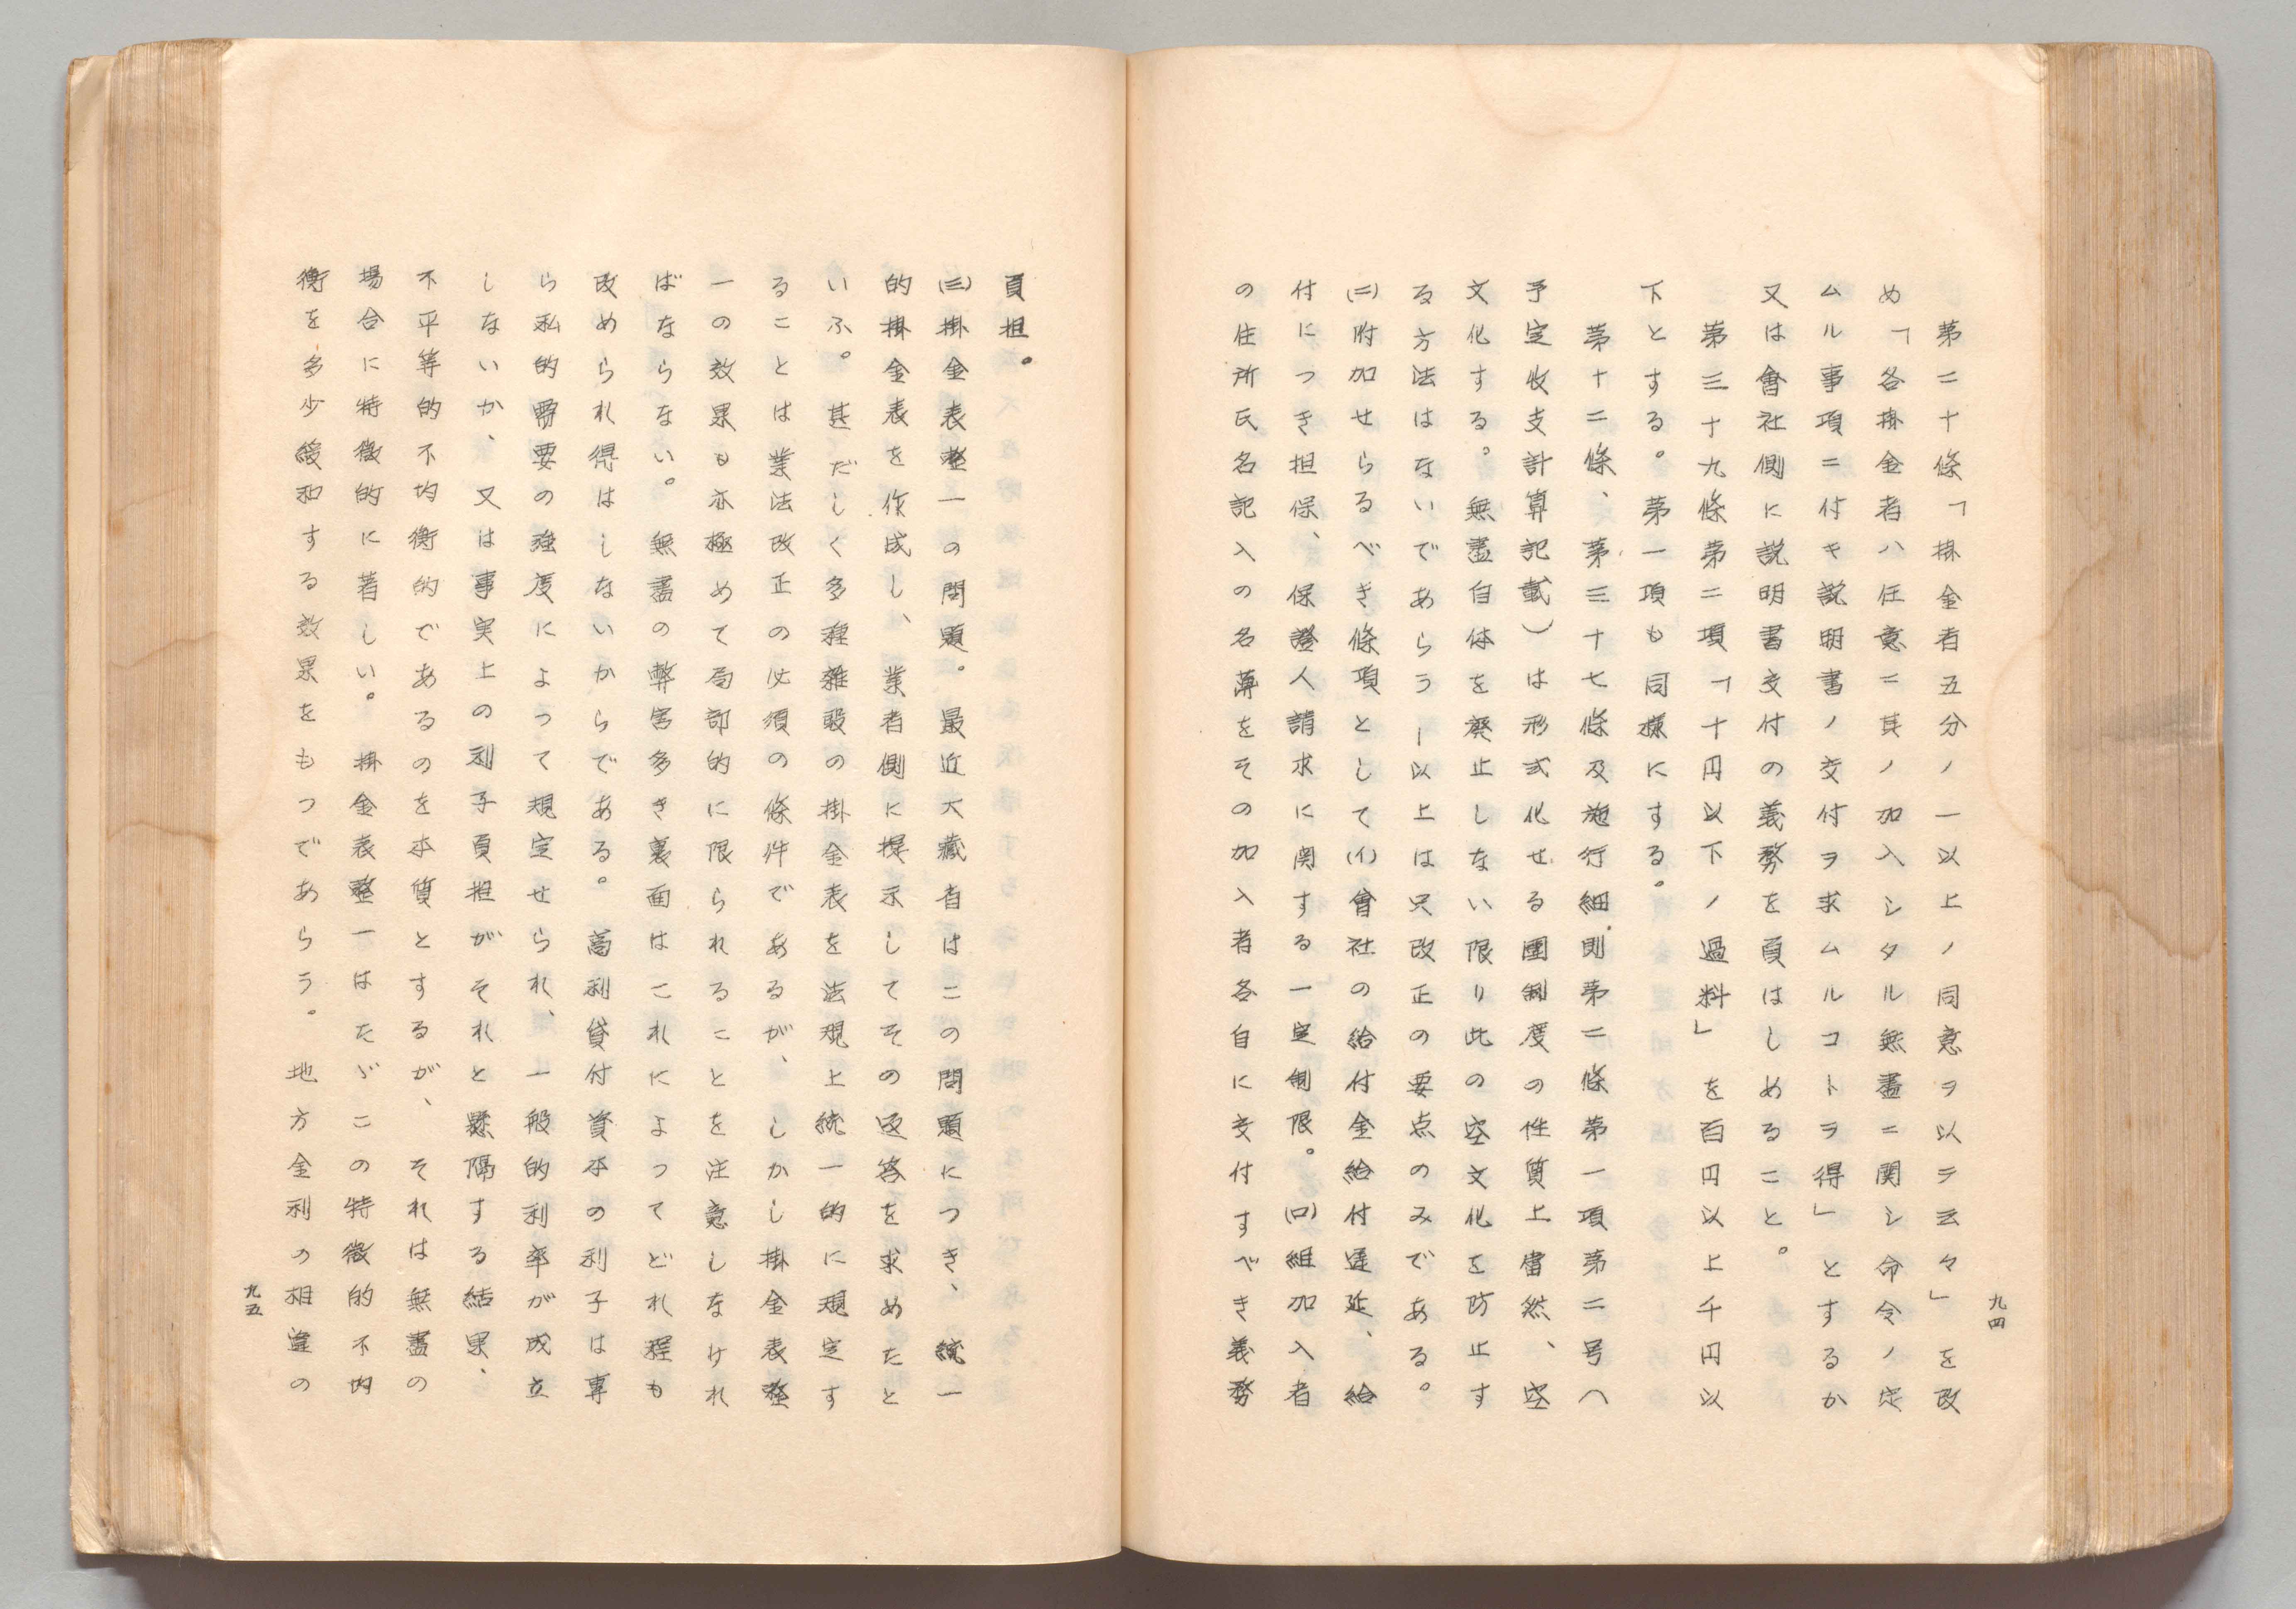 九四
第二十條「掛金者五分ノ一以上ノ同意ヲ以テ云々」を改
め「各掛金者ハ任意ニ其ノ加入シタル無盡ニ関シ命令ノ定
ムル事項ニ付キ説明書ノ交付ヲ求ムルコトヲ得」とするか
又は會社側に説明書交付の義務を負はしめること。
第三十九條第二項「十円以下ノ過料」を百円以上千円以
下とする。第一項も同様にする。
第十二條、第三十七條及施行細則第二條第一項第二号（
予定收支計算記載）は形式化せる團制度の性質上當然、空
文化する。無盡自体を廃止しない限り此の空文化を防止す
る方法はないであらう―以上は只改正の要点のみである。
(二)附加せらるべき條項として(イ)會社の給付金給付遅延、給
付につき担保、保證人請求に関する一定制限。(ロ)組加入者
の住所氏名記入の名薄をその加入者各自に交付すべき義務
負担。
(三)掛金表整一の問題。最近大藏省はこの問題につき、統一
的掛金表を作成し、業者側に提示してその返答を求めたと
いふ。甚だしく多種雜殺の掛金表を法規上統一的に規定す
ることは業法改正の必須の條件であるが、しかし掛金表整
一の效果も亦極めて局部的に限られることを注意しなけれ
ばならない。無盡の弊害多き裏面はこれによってどれ程も
改められ得はしないからである。高利貸付資本の利子は專
ら私的需要の強度によって規定せられ、一般的利率が成立
しないか、又は事実上の利子負担がそれと懸隔する結果、
不平等的不均衡的であるのを本質とするが、それは無盡の
場合に特徴的に著しい。掛金表整一はたゞこの特徴的不均
衡を多少緩和する效果をもつであらう。地方金利の相違の
九五